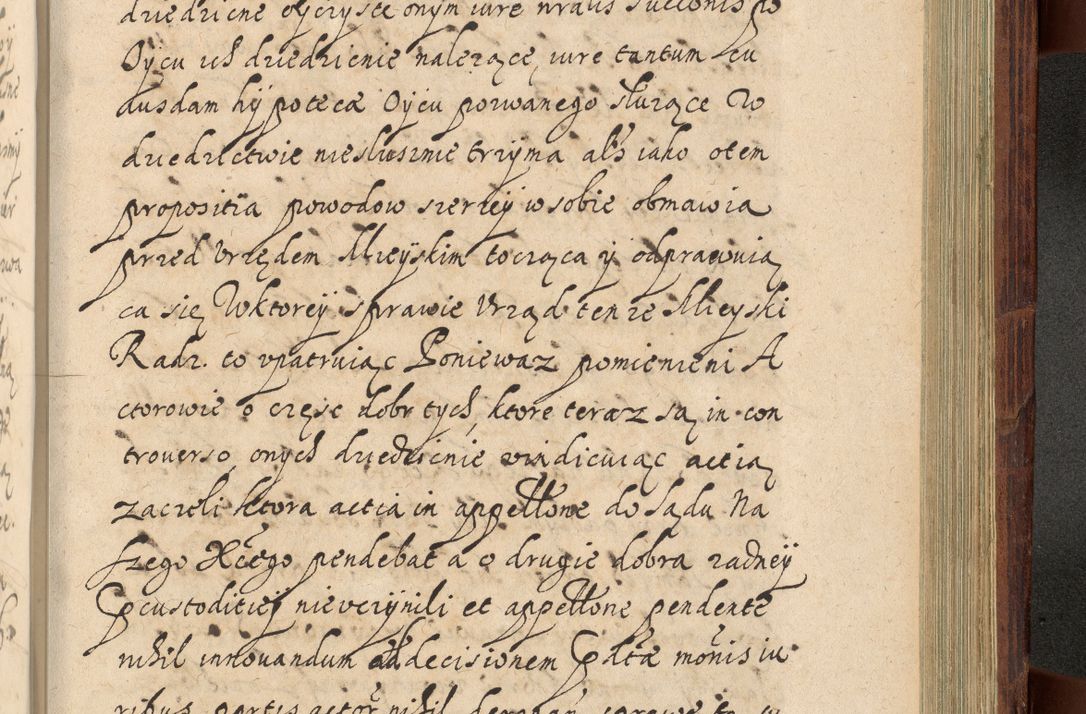 dziedzicne oyczyste onym iure nralis succonis po
Oÿcu ich dziedzicnie nalezące, iure tantum cu
iusdam hÿpotecæ Oÿcu pozwanego słuzące W
dziedzictwie niesłusznie trzÿma als iako otem
propositia powodow szerzeÿ w sobie obmawia
przed Vrzędem Mieÿskim tocząca ÿ odprawuią
ca się Wktoreÿ sprawie Vrząd tenze Mieyski
Radz. to vpatruiąc Poniewaz pomienieni A
ctorowie o częsc dobr tych, ktore teraz są in con
trouerso, onych dziedzicnie vindicuiąc actią
zaczeli ktora actia in appellone do Sądu Na
szego Xcego pendebat a o drugie dobra zadneÿ
custoditieÿ nievczÿnili et appellone pendente
nihil innouandum ad decisionem monis iu
ribus partis actor nihil sprawe tą w